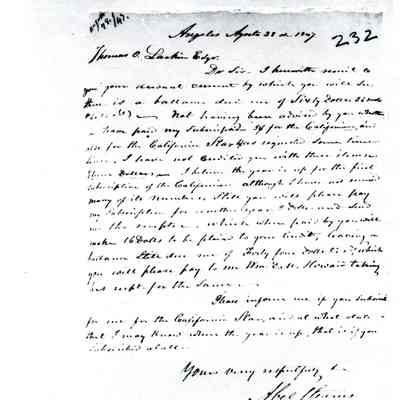 Angeles Agosto 22 de 1847
232
Thomas O. Larkin Esqr.
Dr Sir. I herewith remit to
you your account current by which you will see
there is a ballance due me of Sixty Dollars
Not having been advised by you whether
have paid my Subscription for the Californian, and
also for the California Star as requested some time
I have not credited you with these items
I believe the year is up for the first
subscription of the Californian although I have not received
many of its numbers. Still you will please pay
my Subscription for another year Dolls. and send
me the receipts. which when paid by you will
make 16 Dolls to be placed to your Credit, leaving a
balance still due me of Forty four Dolls which
you will please pay to Mr. Wm. D. M. Howard taking
his receipt for the same.
Please inform me if you subscribed
for me for the California Star, and at what date
that I may know when the year is up, that is if you
subscribed at all.
Yours very respectfully
Abel Stearns